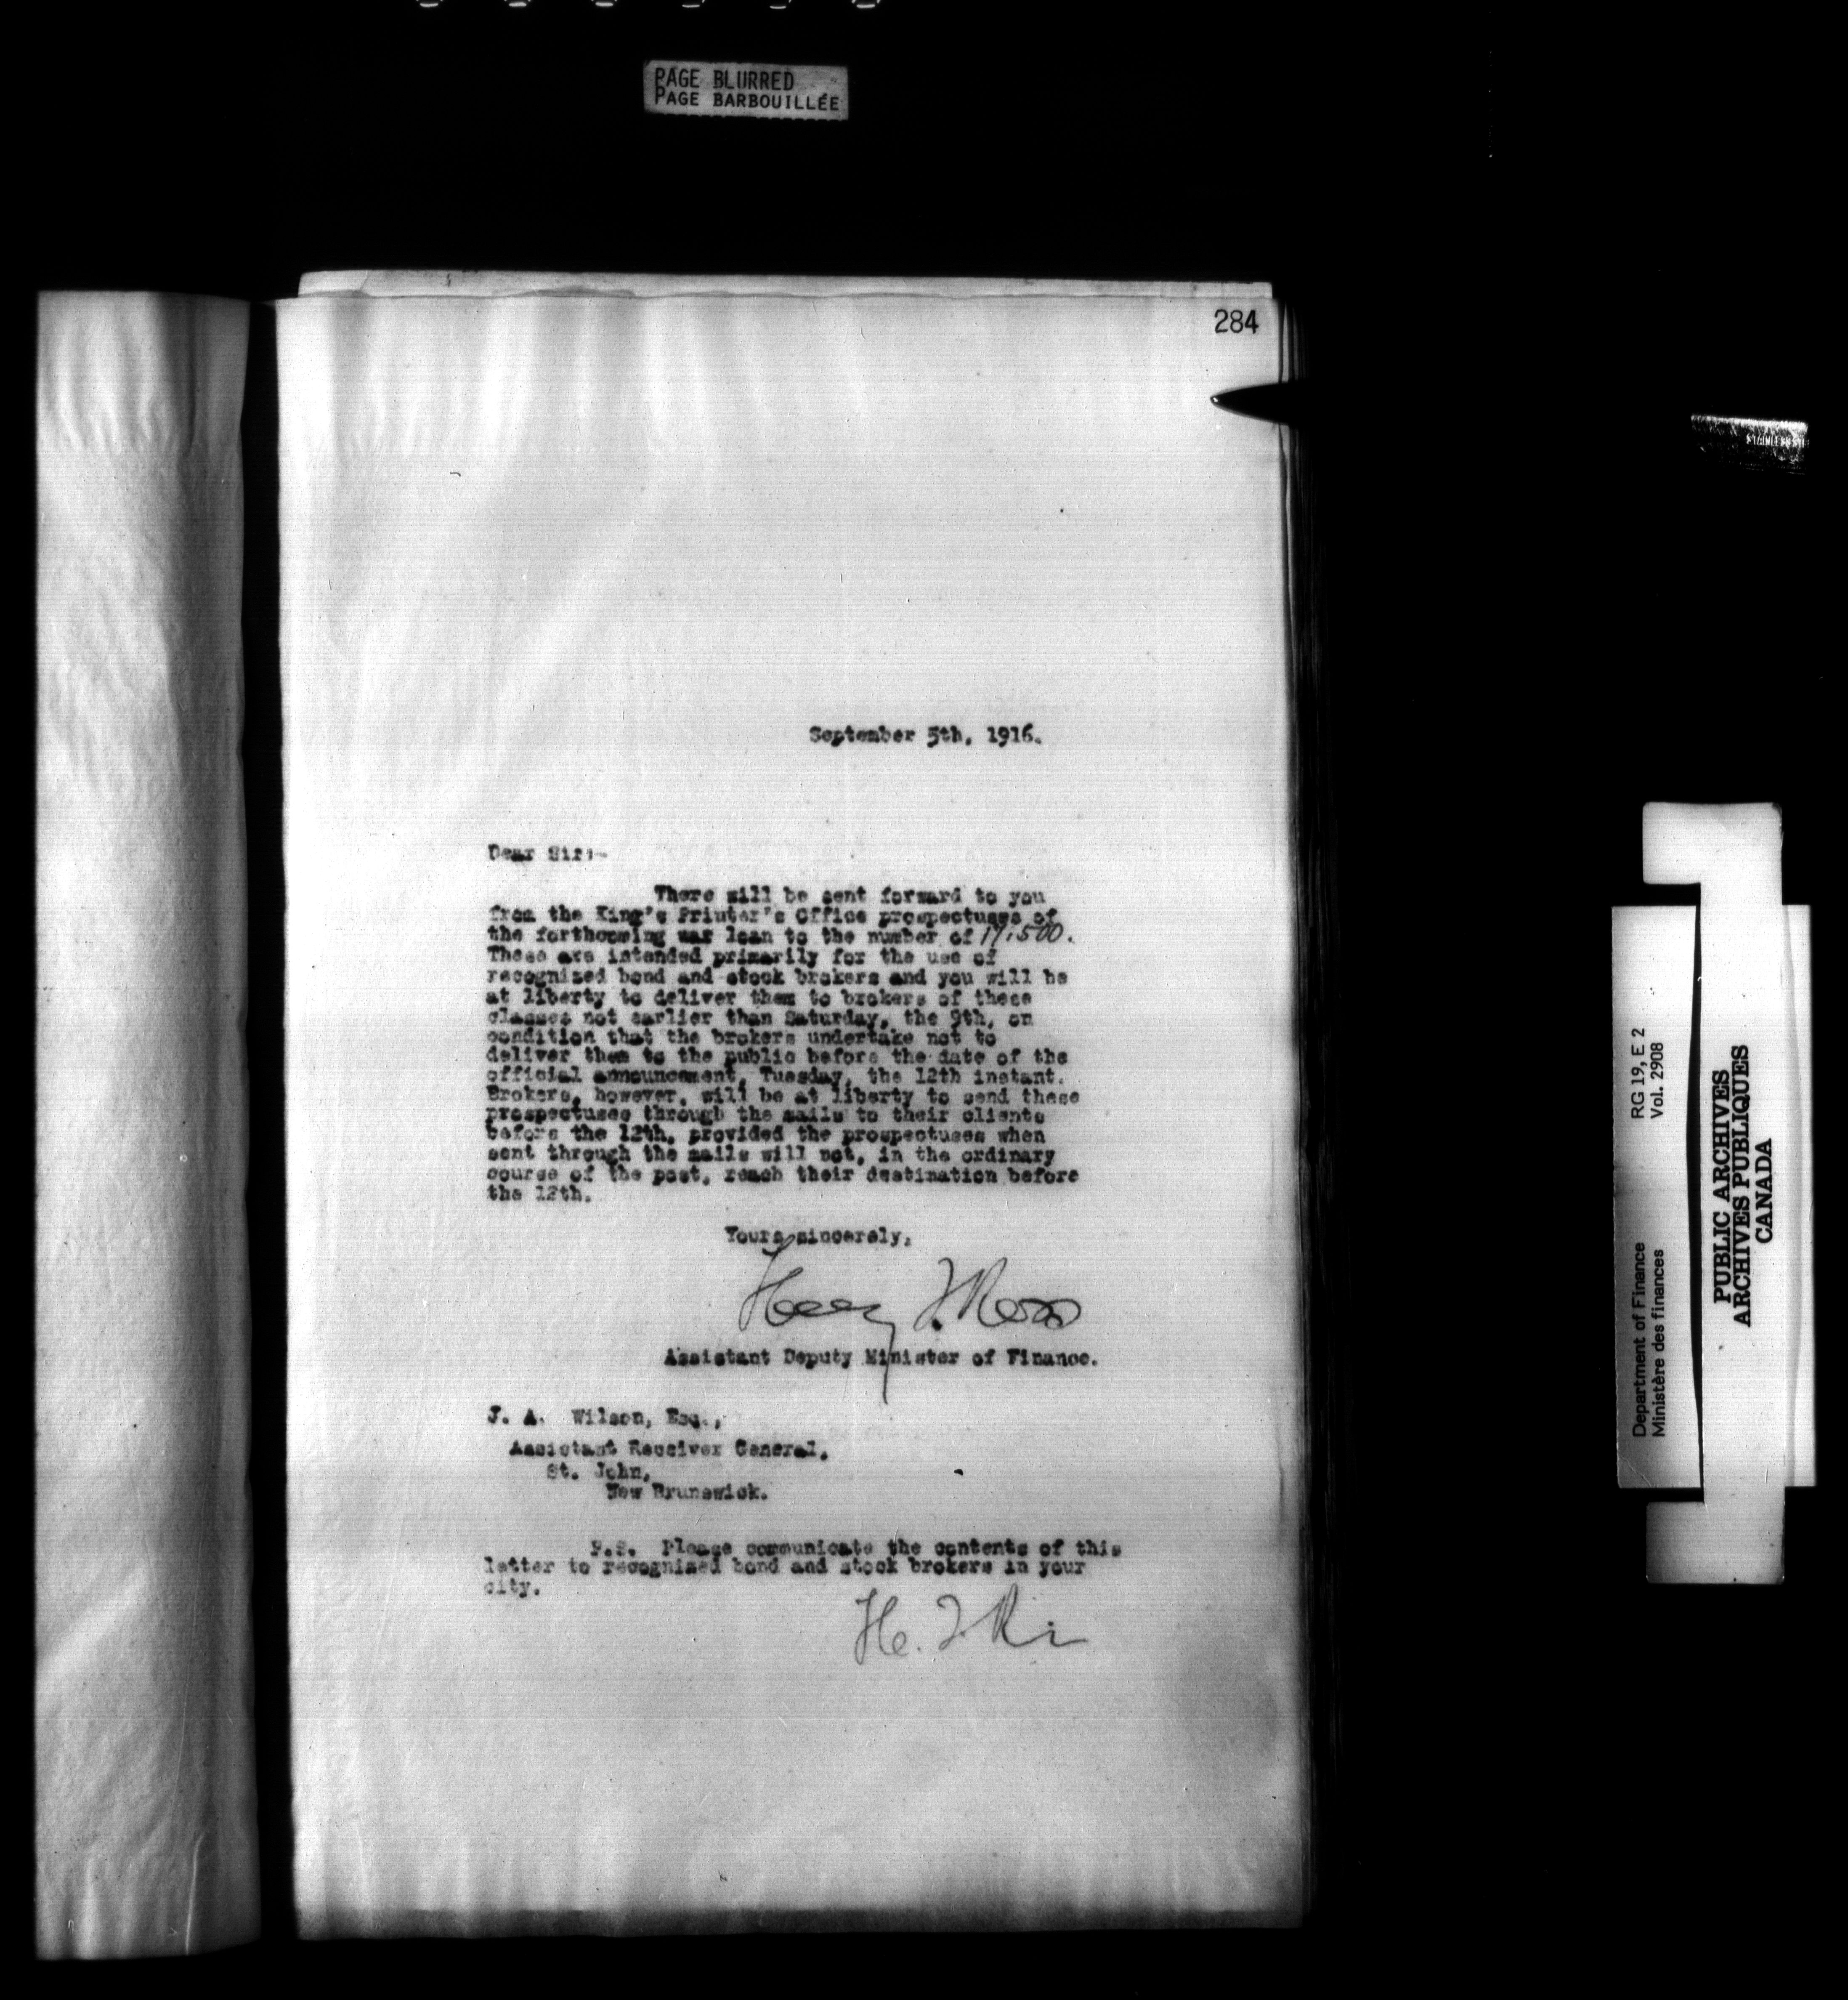 PAGE BLURRED
PAGE BARBOUILLÉE
284
September 5th, 1916.
Dear Sir:-
There will be sent forward to you
from the King's Printer's Office prospectuses of
the forthcoming war loan to the number of 17,500.
These are intended primarily for the use of
recognized bond and stock brokers and you will be
at liberty to deliver them to brokers of these
classes not earlier than Saturday, the 9th, on
condition that the brokers undertake not to
deliver them to the public before the date of the
official announcement, Tuesday, the 12th instant.
Brokers, however, will be at liberty to send these
prospectuses through the mails to their clients
before the 12th, provided the prospectuses when
sent through the mails will not, in the ordinary
course of the post, reach their destination before
the 12th.
Yours sincerely,
Assistant Deputy Minister of Finance.
J. A. Wilson, Esq.,
Assistant Receiver General,
St. John,
New Brunswick.
P.S. Please communicate the contents of this
letter to recognized bond and stock brokers in your
city.
RG 19, E 2
Vol. 2908
Department of Finance
Ministère des finances
PUBLIC ARCHIVES
ARCHIVES PUBLIQUES
CANADA